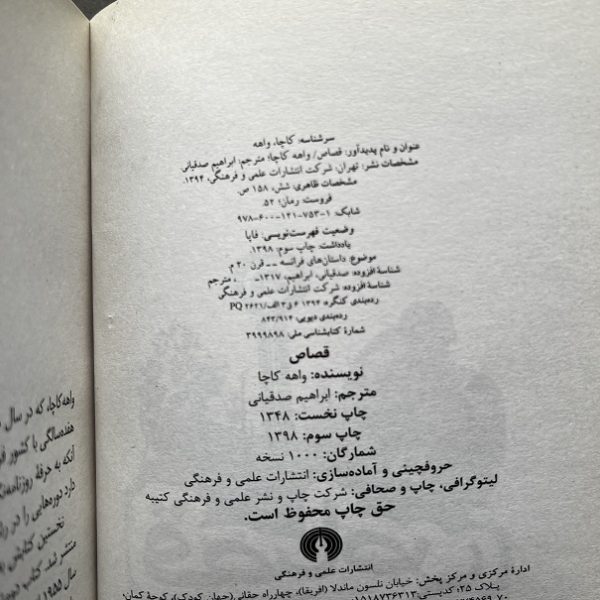 سرشناسه: کاچا، واهه
عنوان و نام پدیدآور: قصاص/ واهه کاچا؛ مترجم: ابراهیم صدقیانی.
مشخصات نشر: تهران: شرکت انتشارات علمی و فرهنگی، ۱۳۹۴.
مشخصات ظاهری: شش، ۱۵۸ ص.
فروست: رمان؛ ۵۲.
شابک: ۱-۷۵۳-۱۲۱-۶۰۰-۹۷۸
وضعیت فهرست‌نویسی: فاپا
یادداشت: چاپ سوم: ۱۳۹۸.
موضوع: داستان‌های فرانسه -- قرن ۲۰ م.
شناسۀ افزوده: صدقیانی، ابراهیم، ۱۳۱۷- ، مترجم
شناسۀ افزوده: شرکت انتشارات علمی و فرهنگی
رده‌بندی کنگره: ۱۳۹۴ ۶ق۳الف/PQ ۲۶۲۱
رده‌بندی دیویی: ۸۴۳/۹۱۴
شمارۀ کتابشناسی ملی: ۳۹۹۹۸۹۸
قصاص
نویسنده: واهه کاچا
مترجم: ابراهیم صدقیانی
چاپ نخست: ۱۳۴۸
چاپ سوم: ۱۳۹۸
شمارگان: ۱۰۰۰ نسخه
حروفچینی و آماده‌سازی: انتشارات علمی و فرهنگی
لیتوگرافی، چاپ و صحافی: شرکت چاپ و نشر علمی و فرهنگی کتیبه
حق چاپ محفوظ است.
انتشارات علمی و فرهنگی
ادارۀ مرکزی و مرکز پخش: خیابان نلسون ماندلا (افریقا)، چهارراه حقانی (جهان کودک)، کوچۀ کمان،
پلاک ۲۵؛ کدپستی: ۱۵۱۸۷۳۶۳۱۳
واهه کاچا، که در سال
هفده‌سالگی با کشور
آنکه به حرفۀ
دارد دوره‌هایی را در
نخستین کتابش
منتشر شد. کتاب
سال ۱۹۵۵